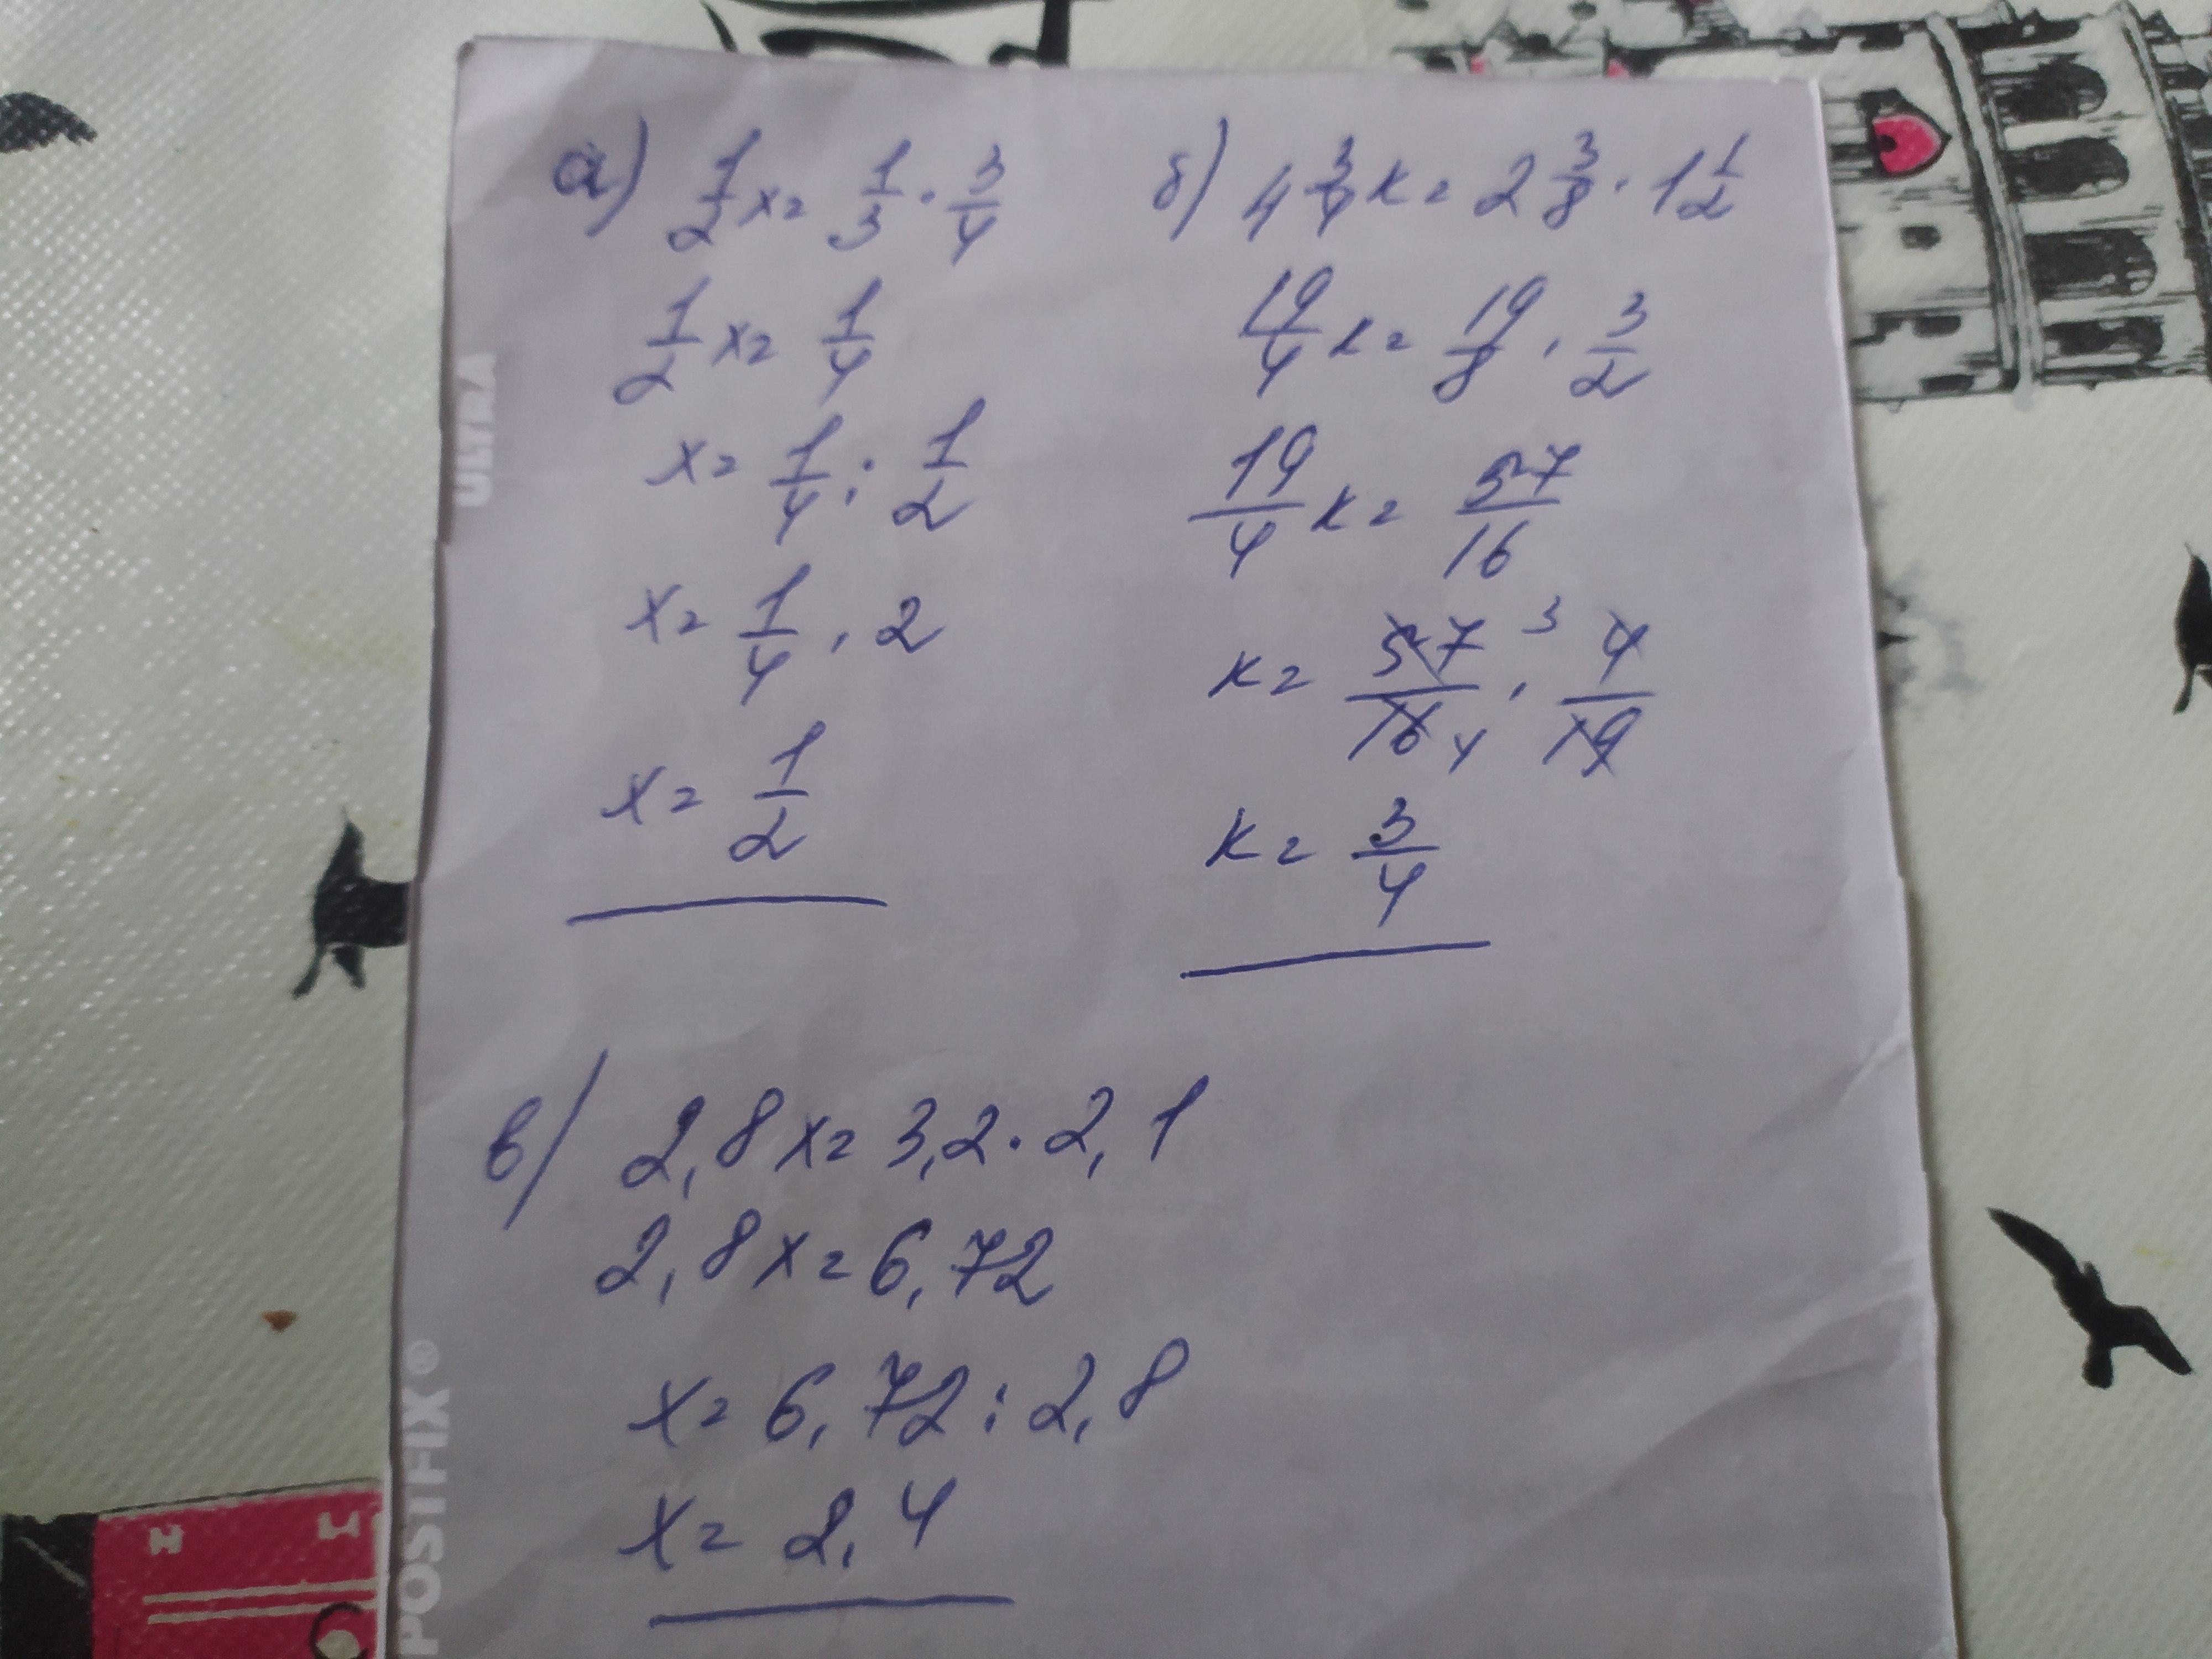 а) 1/2 x = 1/3 · 3/4
1/2 x = 1/4
x = 1/4 : 1/2
x = 1/4 · 2
x = 1/2
б) 4 3/4 x = 2 3/8 · 1 1/2
19/4 x = 19/8 · 3/2
19/4 x = 57/16
x = 57 3/16 4 · 4/19
x = 3/4
в) 2,8 x = 3,2 · 2,1
2,8 x = 6,72
x = 6,72 : 2,8
x = 2,4
ULTRA
POSTFIX®